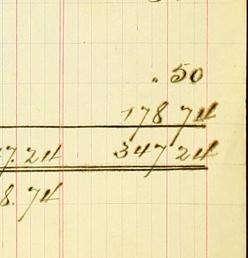 . 50
178 74
7.24 347 24
8.74